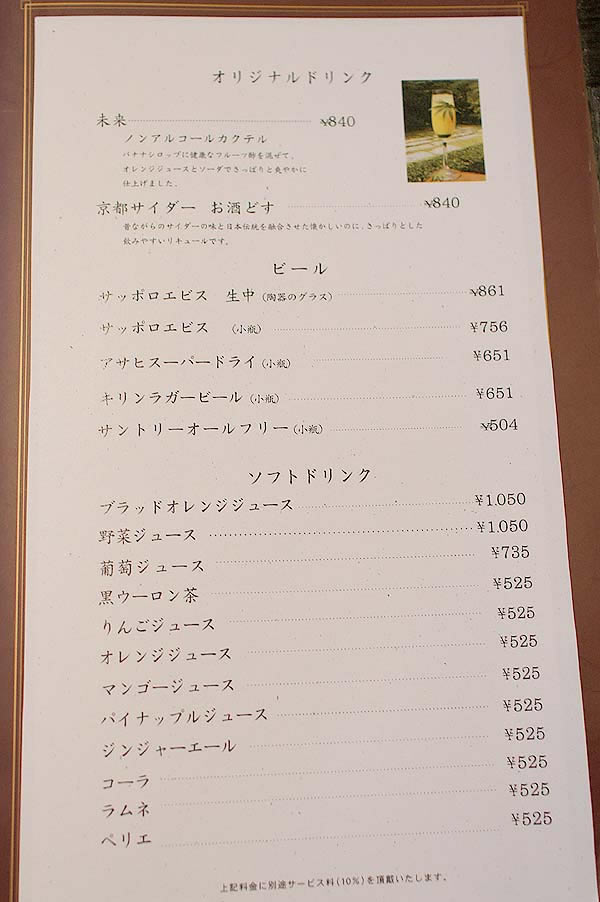 オリジナルドリンク
未来 ¥840
ノンアルコールカクテル
バナナシロップに健康なフルーツ酢を混ぜて、
オレンジジュースとソーダでさっぱりと爽やかに
仕上げました。
京都サイダー お酒どす ¥840
昔ながらのサイダーの味と日本伝統を融合させた懐かしいのに、さっぱりとした
飲みやすいリキュールです。
ビール
サッポロエビス 生中(陶器のグラス) ¥861
サッポロエビス (小瓶) ¥756
アサヒスーパードライ(小瓶) ¥651
キリンラガービール(小瓶) ¥651
サントリーオールフリー(小瓶) ¥504
ソフトドリンク
ブラッドオレンジジュース ¥1.050
野菜ジュース ¥1.050
葡萄ジュース ¥735
黒ウーロン茶 ¥525
りんごジュース ¥525
オレンジジュース ¥525
マンゴージュース ¥525
パイナップルジュース ¥525
ジンジャーエール ¥525
コーラ ¥525
ラムネ ¥525
ペリエ ¥525
上記料金に別途サービス料(10%)を頂戴いたします。